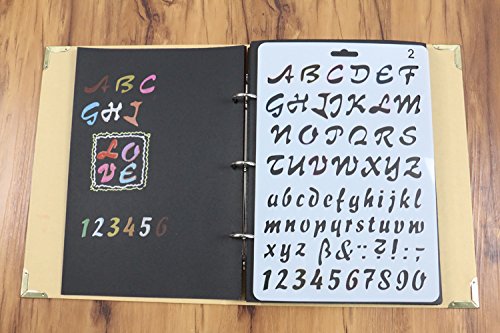 A B C
G H I
L O
V E
1 2 3 4 5 6
2
A B C D E F
G H I J K L M
N O P Q R S
T U V W X Y Z
a b c d e f g h i j k l
m n o p q r s t u v w
x y z ß & : ? ! : ; -
1 2 3 4 5 6 7 8 9 0